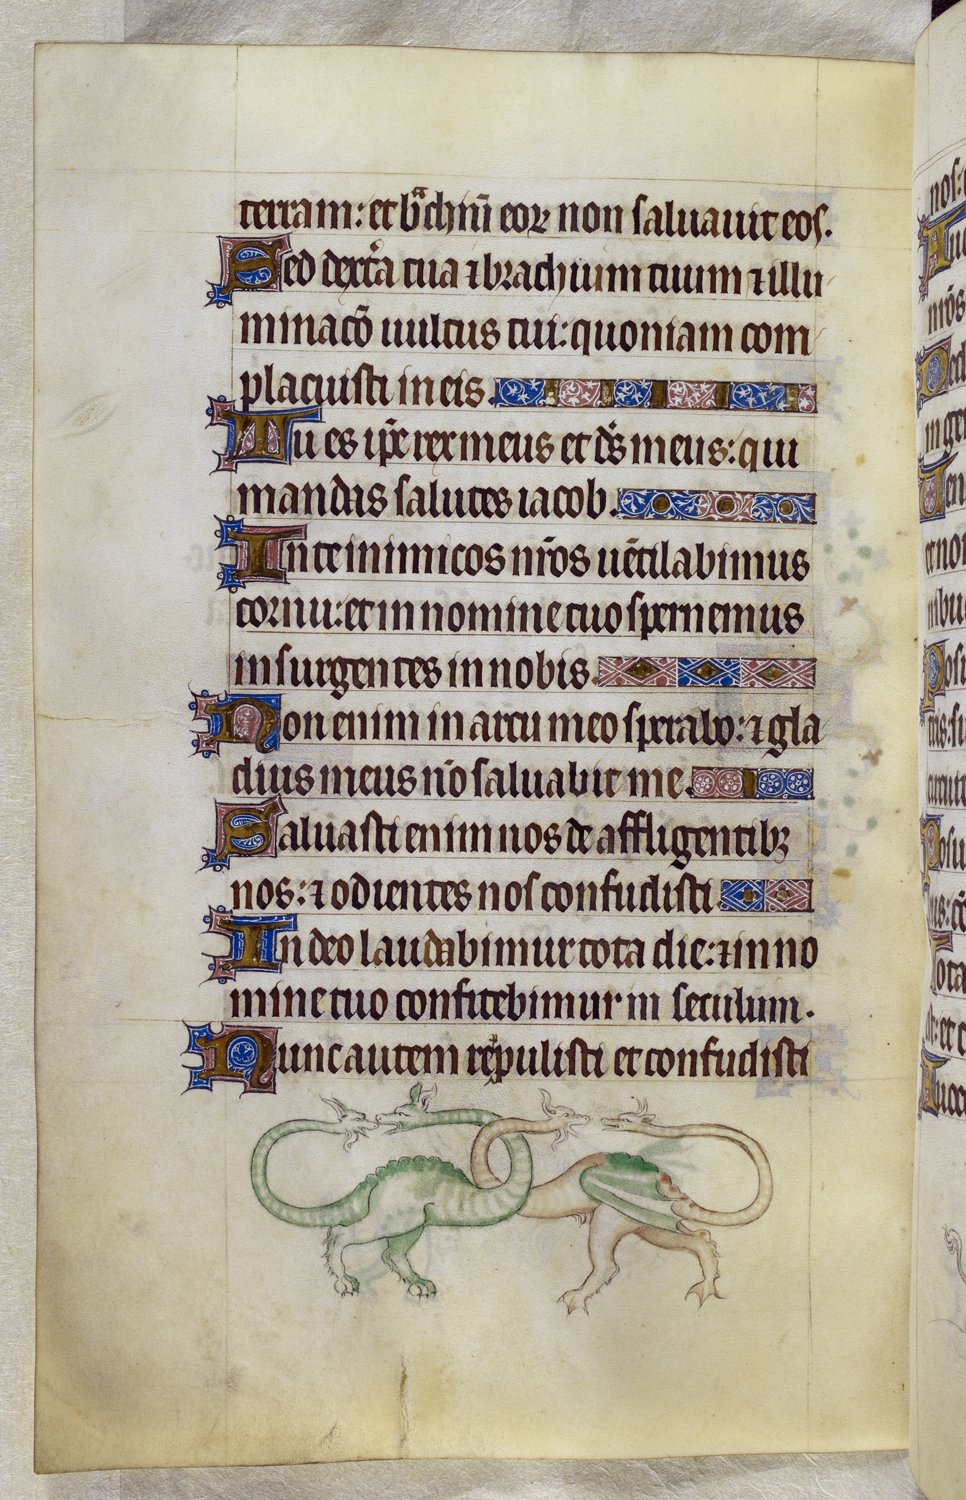 terram: et br̃achiũ eoꝝ non saluauit eos.
Sed dext̃a tua ⁊ brachium tuum ⁊ illu
minacõ uultus tui: quoniam com
placuisti in eis.
Tu es ip̃e rex meus et ds̃ meus: qui
mandas salutes iacob.
In te inimicos nr̃os uẽtilabimus
cornu: et in nomine tuo spernemus
insurgentes in nobis.
Non enim in arcu meo sperabo: ⁊ gla
dius meus nõ saluabit me.
Saluasti enim nos de affligentibꝫ
nos: ⁊ odientes nos confudisti
In deo laudabimur tota die: ⁊ in no
mine tuo confitebimur in seculum.
Nunc autem repulisti et confudisti